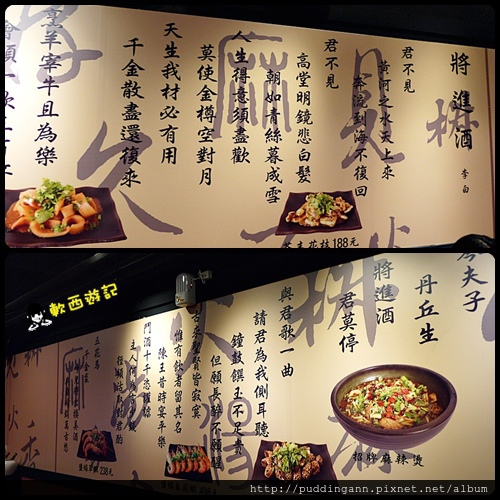 將進酒
李白
君不見
黃河之水天上來
奔流到海不復回
君不見
高堂明鏡悲白髮
朝如青絲暮成雪
人生得意須盡歡
莫使金樽空對月
天生我材必有用
千金散盡還復來
烹羊宰牛且為樂
會須一飲三百
188元
軟西遊記
岑夫子
丹丘生
將進酒
君莫停
與君歌一曲
請君為我側耳聽
鐘鼓饌玉不足貴
但願長醉不願醒
古來聖賢皆寂寞
惟有飲者留其名
陳王昔時宴平樂
斗酒十千恣歡謔
主人何為言少錢
五花馬
千金裘
招牌麻辣燙
238元
http://puddingann.pixnet.net/album